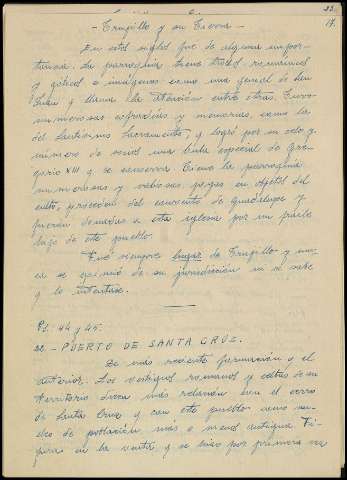 33.
17.
- Trujillo y su Tierra -
En este siglo fue de alguna impor-
tancia. La parroquia tiene restos románicos
y góticos e imágenes como una genial de San
Juan y llama la atención entre otras. Tuvo
numerosas cofradías y memorias, como la
del Santísimo Sacramento, y logró por su celo y
número de socios una bula especial de Gre-
gorio XIII y se conserva. Tiene la parroquia
numerosas y valiosas piezas en objetos del
culto, proceden del convento de Guadalupe y
fueron donadas a esta iglesia por un fraile
lego de este pueblo.
Fué siempre lugar de Trujillo y nun-
ca se eximió de su jurisdicción ni se sabe
y lo intentase.
Pg. 44 y 45.
22.- PUERTO DE SANTA CRUZ.
Es más reciente formación q el
anterior. Los vestigios romanos y celtas de su
territorio dicen más relación con el cerro
de Santa Cruz q con este pueblo como nú-
cleo de población más o menos antigua. Fi-
gura en la y se hizo por primera vez